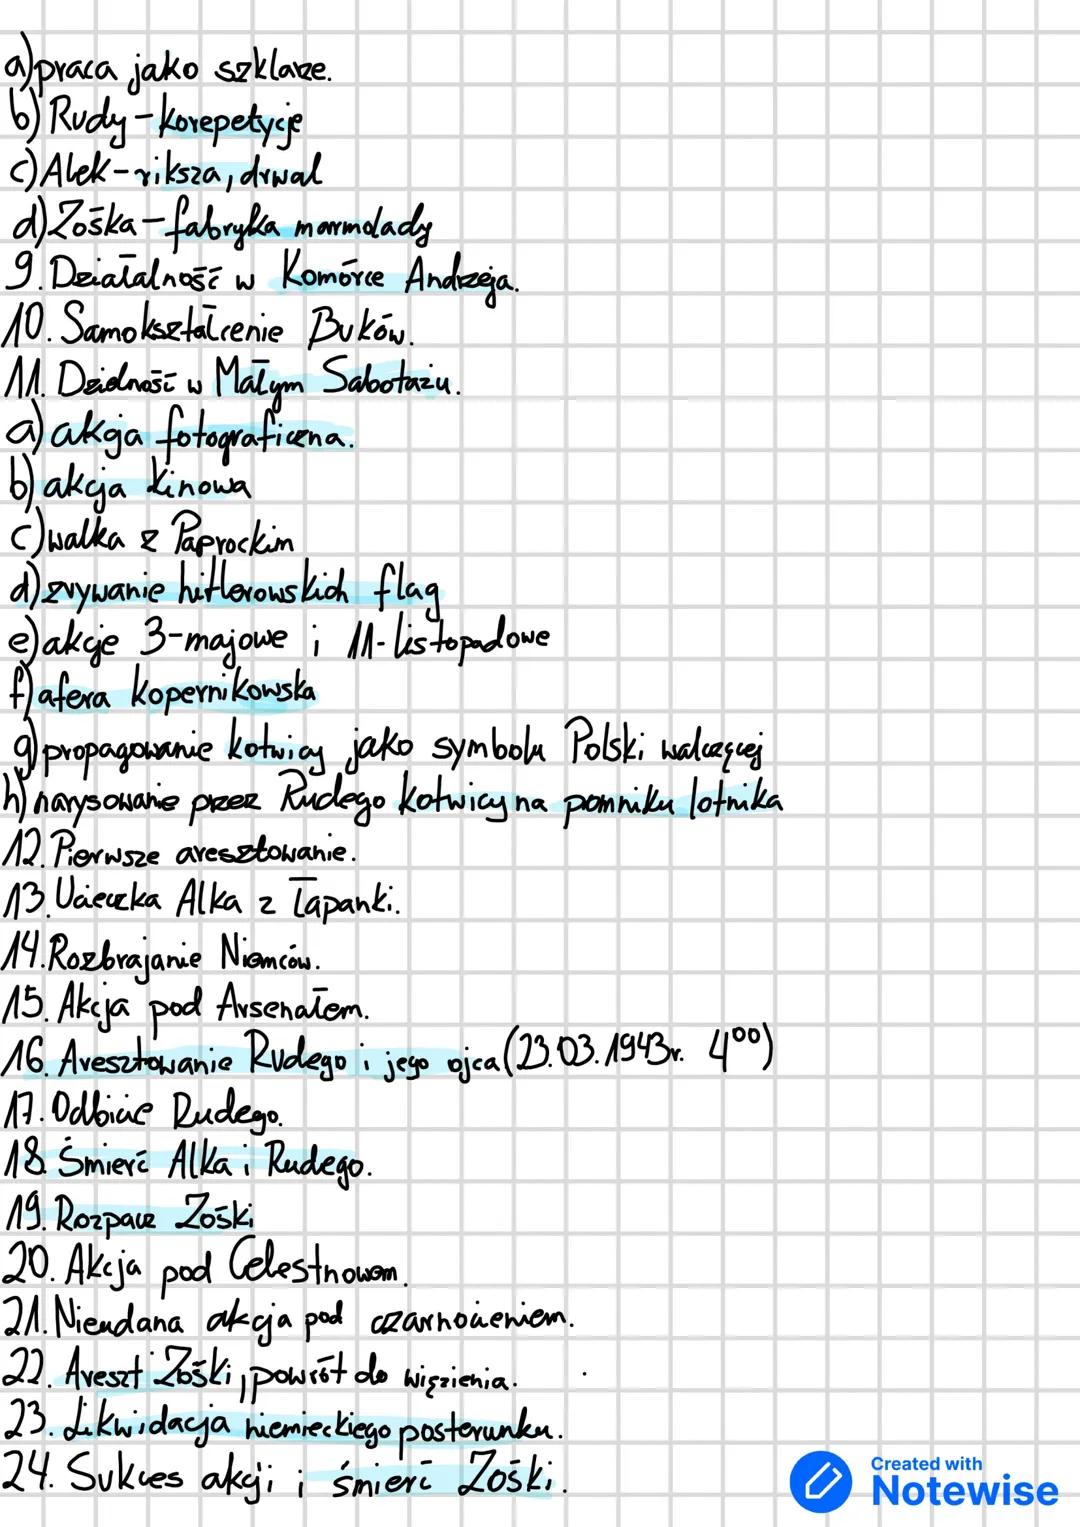 a) praca jako szklarze.
b) Rudy – korepetycje
c) Alek – riksza, drwal
d) Zośka – fabryka marmolady
9. Działalność w Komórce Andrzeja.
10. Samokształcenie Buków.
11. Dzielność w Małym Sabotażu.
a) akcja fotograficzna.
b) akcja kinowa
c) walka z Paprockim
d) zrywanie hitlerowskich flag
e) akcje 3-majowe i 11-listopadowe
f) afera kopernikowska
g) propagowanie kotwicy jako symbolu Polski walczącej
h) narysowanie przez Rudego kotwicy na pomniku lotnika
12. Pierwsze aresztowanie.
13. Ucieczka Alka z łapanki.
14. Rozbrajanie Niemców.
15. Akcja pod Arsenałem.
16. Aresztowanie Rudego i jego ojca (23.03.1943r. 4⁰⁰)
17. Odbicie Rudego.
18. Śmierć Alka i Rudego.
19. Rozpacz Zośki
20. Akcja pod Celestnowem.
21. Nieudana akcja pod czarnocieniem.
22. Areszt Zośki, powrót do więzienia.
23. Likwidacja niemieckiego posterunku.
24. Sukces akcji i śmierć Zośki.
Created with
Notewise